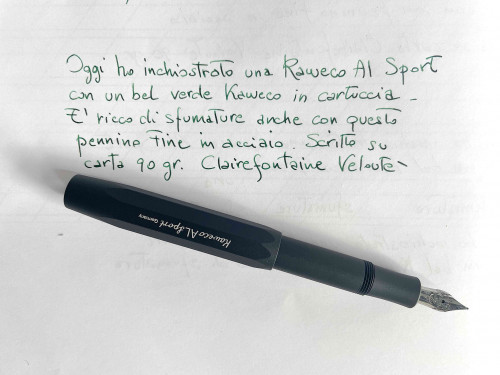 Oggi ho inchiostrato una Kaweco Al Sport
con un bel verde Kaweco in cartuccia -
E' ricco di sfumature anche con questo
pennino fine in acciaio. Scritto su
carta 90 gr. Clairefontaine Veloute-
Kaweco AL Sport Germany